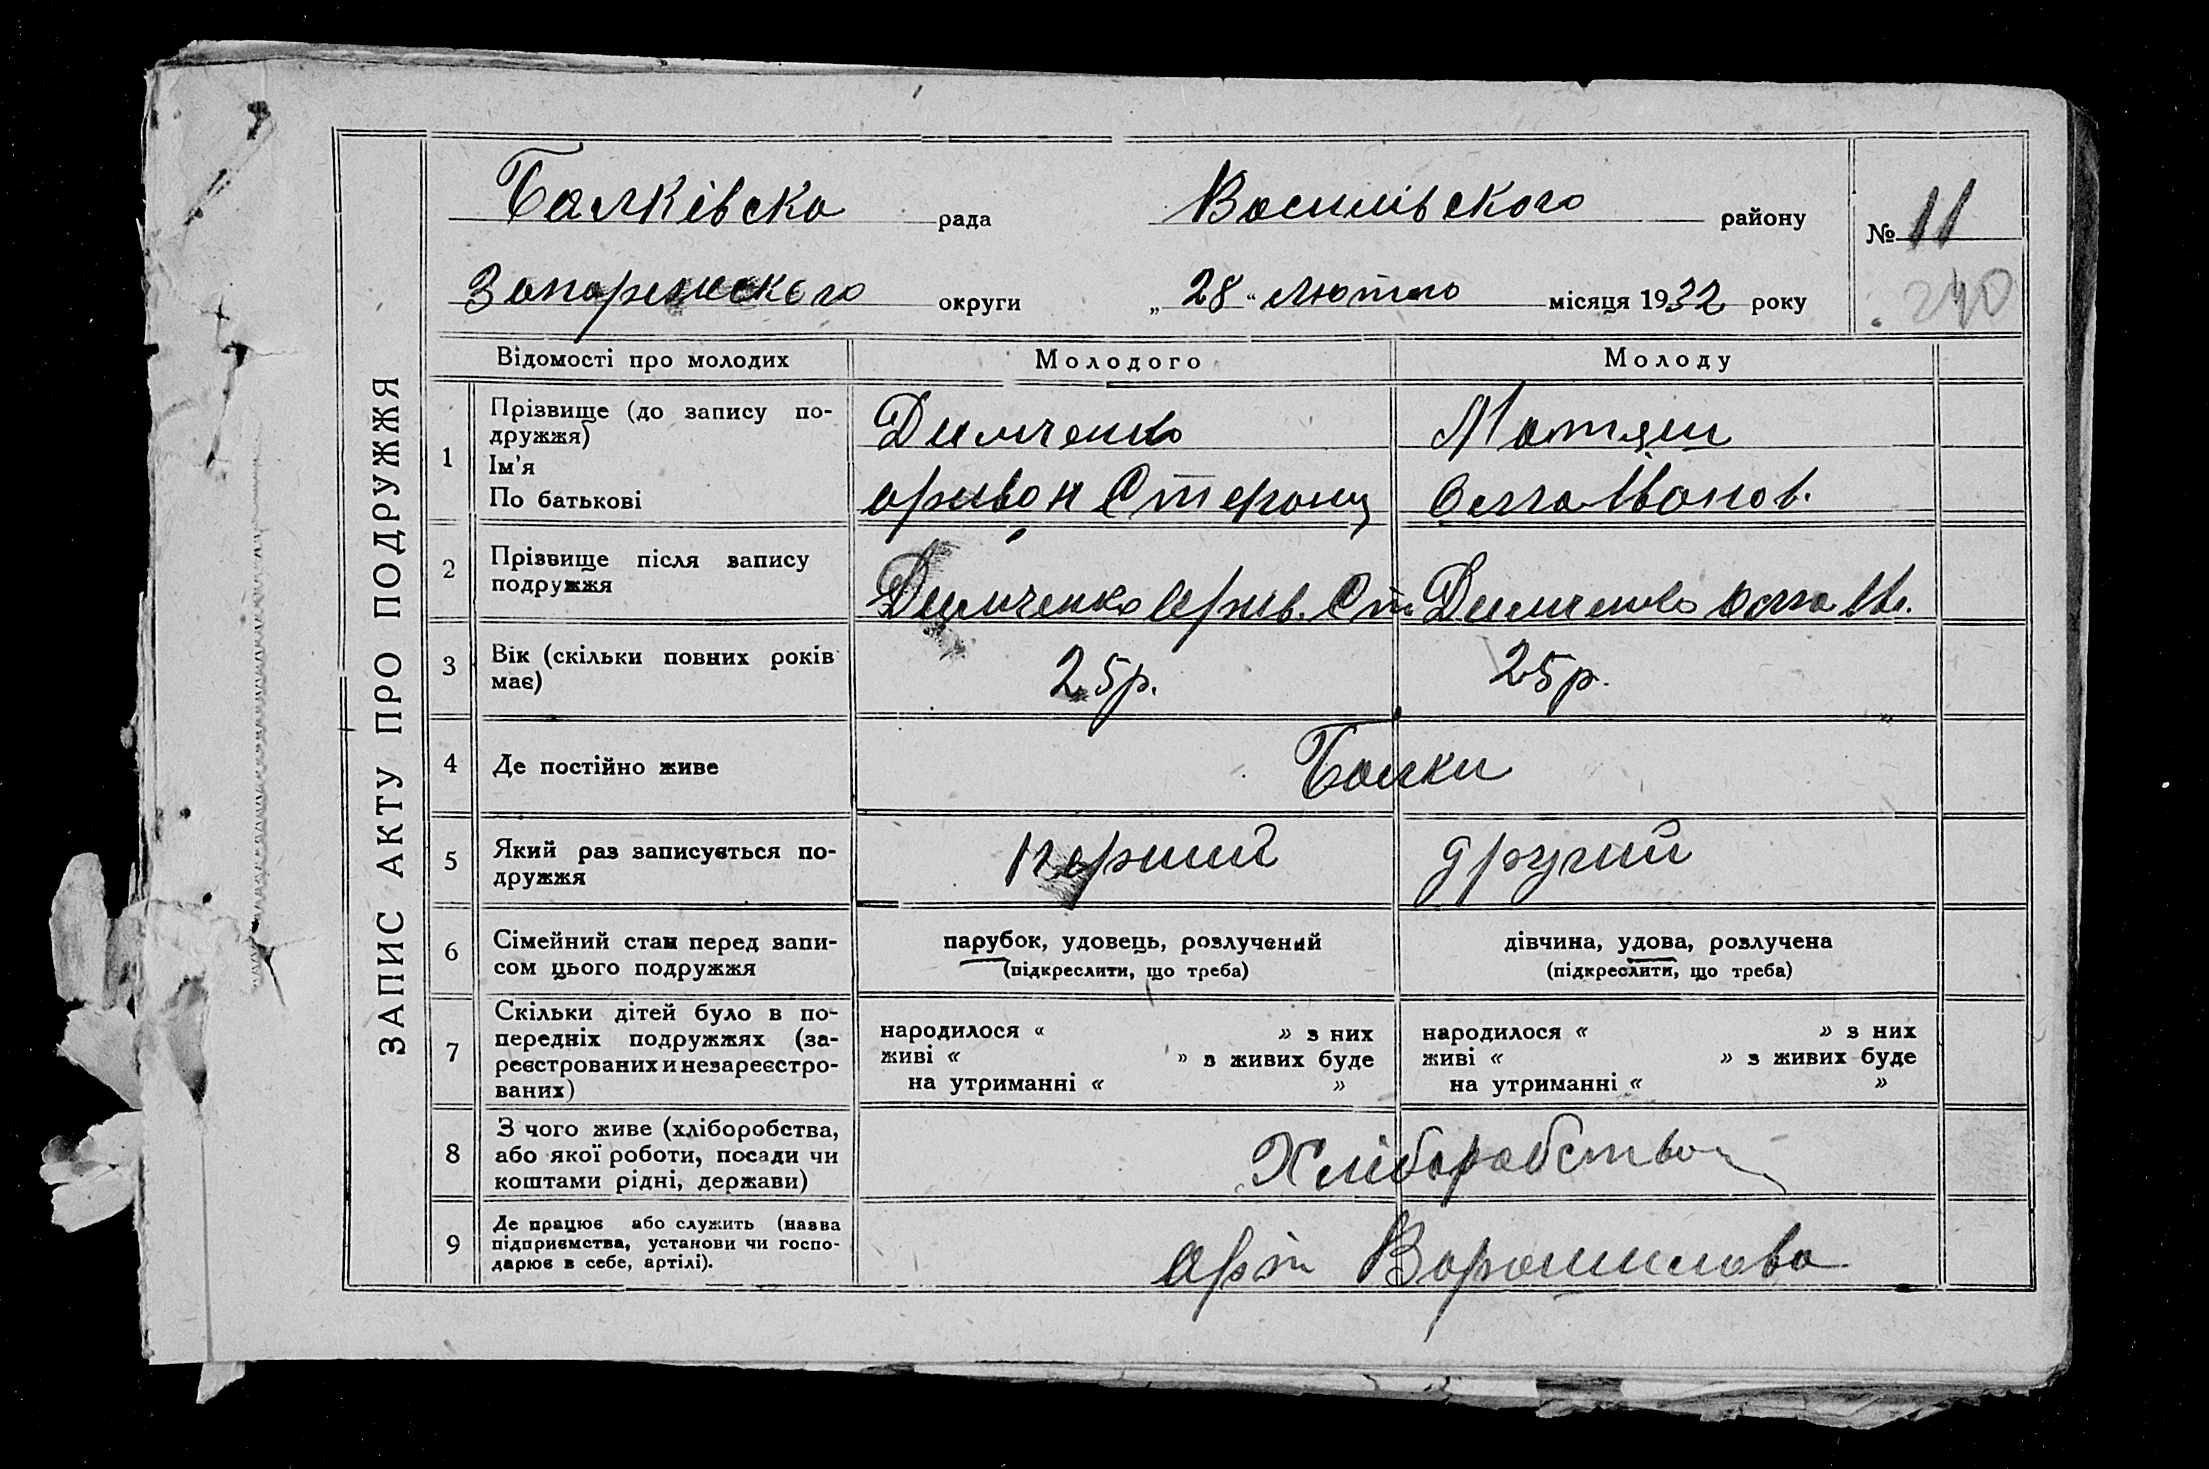 ЗАПИС АКТУ ПРО ПОДРУЖЖЯ
Балківска рада Василівского району № 11
Запорижского округи „28“ Лютого місяця 1932 року 240
Відомості про молодих Молодого Молоду
1 Прізвище (до запису по-
дружжя) Димченко Мотяш
Ім'я
По батькові Оривон Стефонц Олга Іванов.
2 Прізвище після запису
подружжя Димченко Орив. Ст Димченко Олга Ів.
3 Вік (скільки повних років
має) 25р. 25р.
4 Де постійно живе Балки
5 Який раз записується по-
дружжя перший другий
6 Сімейний стан перед запи-
сом цього подружжя
парубок, удовець, розлучений
(підкреслити, що треба)
дівчина, удова, розлучена
(підкреслити, що треба)
7 Скільки дітей було в по-
передніх подружжях (за-
реєстрованих и незареєстро-
ваних)
народилося « » з них
живі « » з живих буде
на утриманні « »
народилося « » з них
живі « » з живих буде
на утриманні « »
8 З чого живе (хліборобства,
або якої роботи, посади чи
коштами рідні, держави)
Хліборобство
9 Де працює або служить (назва
підприємства, установи чи госпо-
дарює в себе, артілі).
Арт Ворошилова